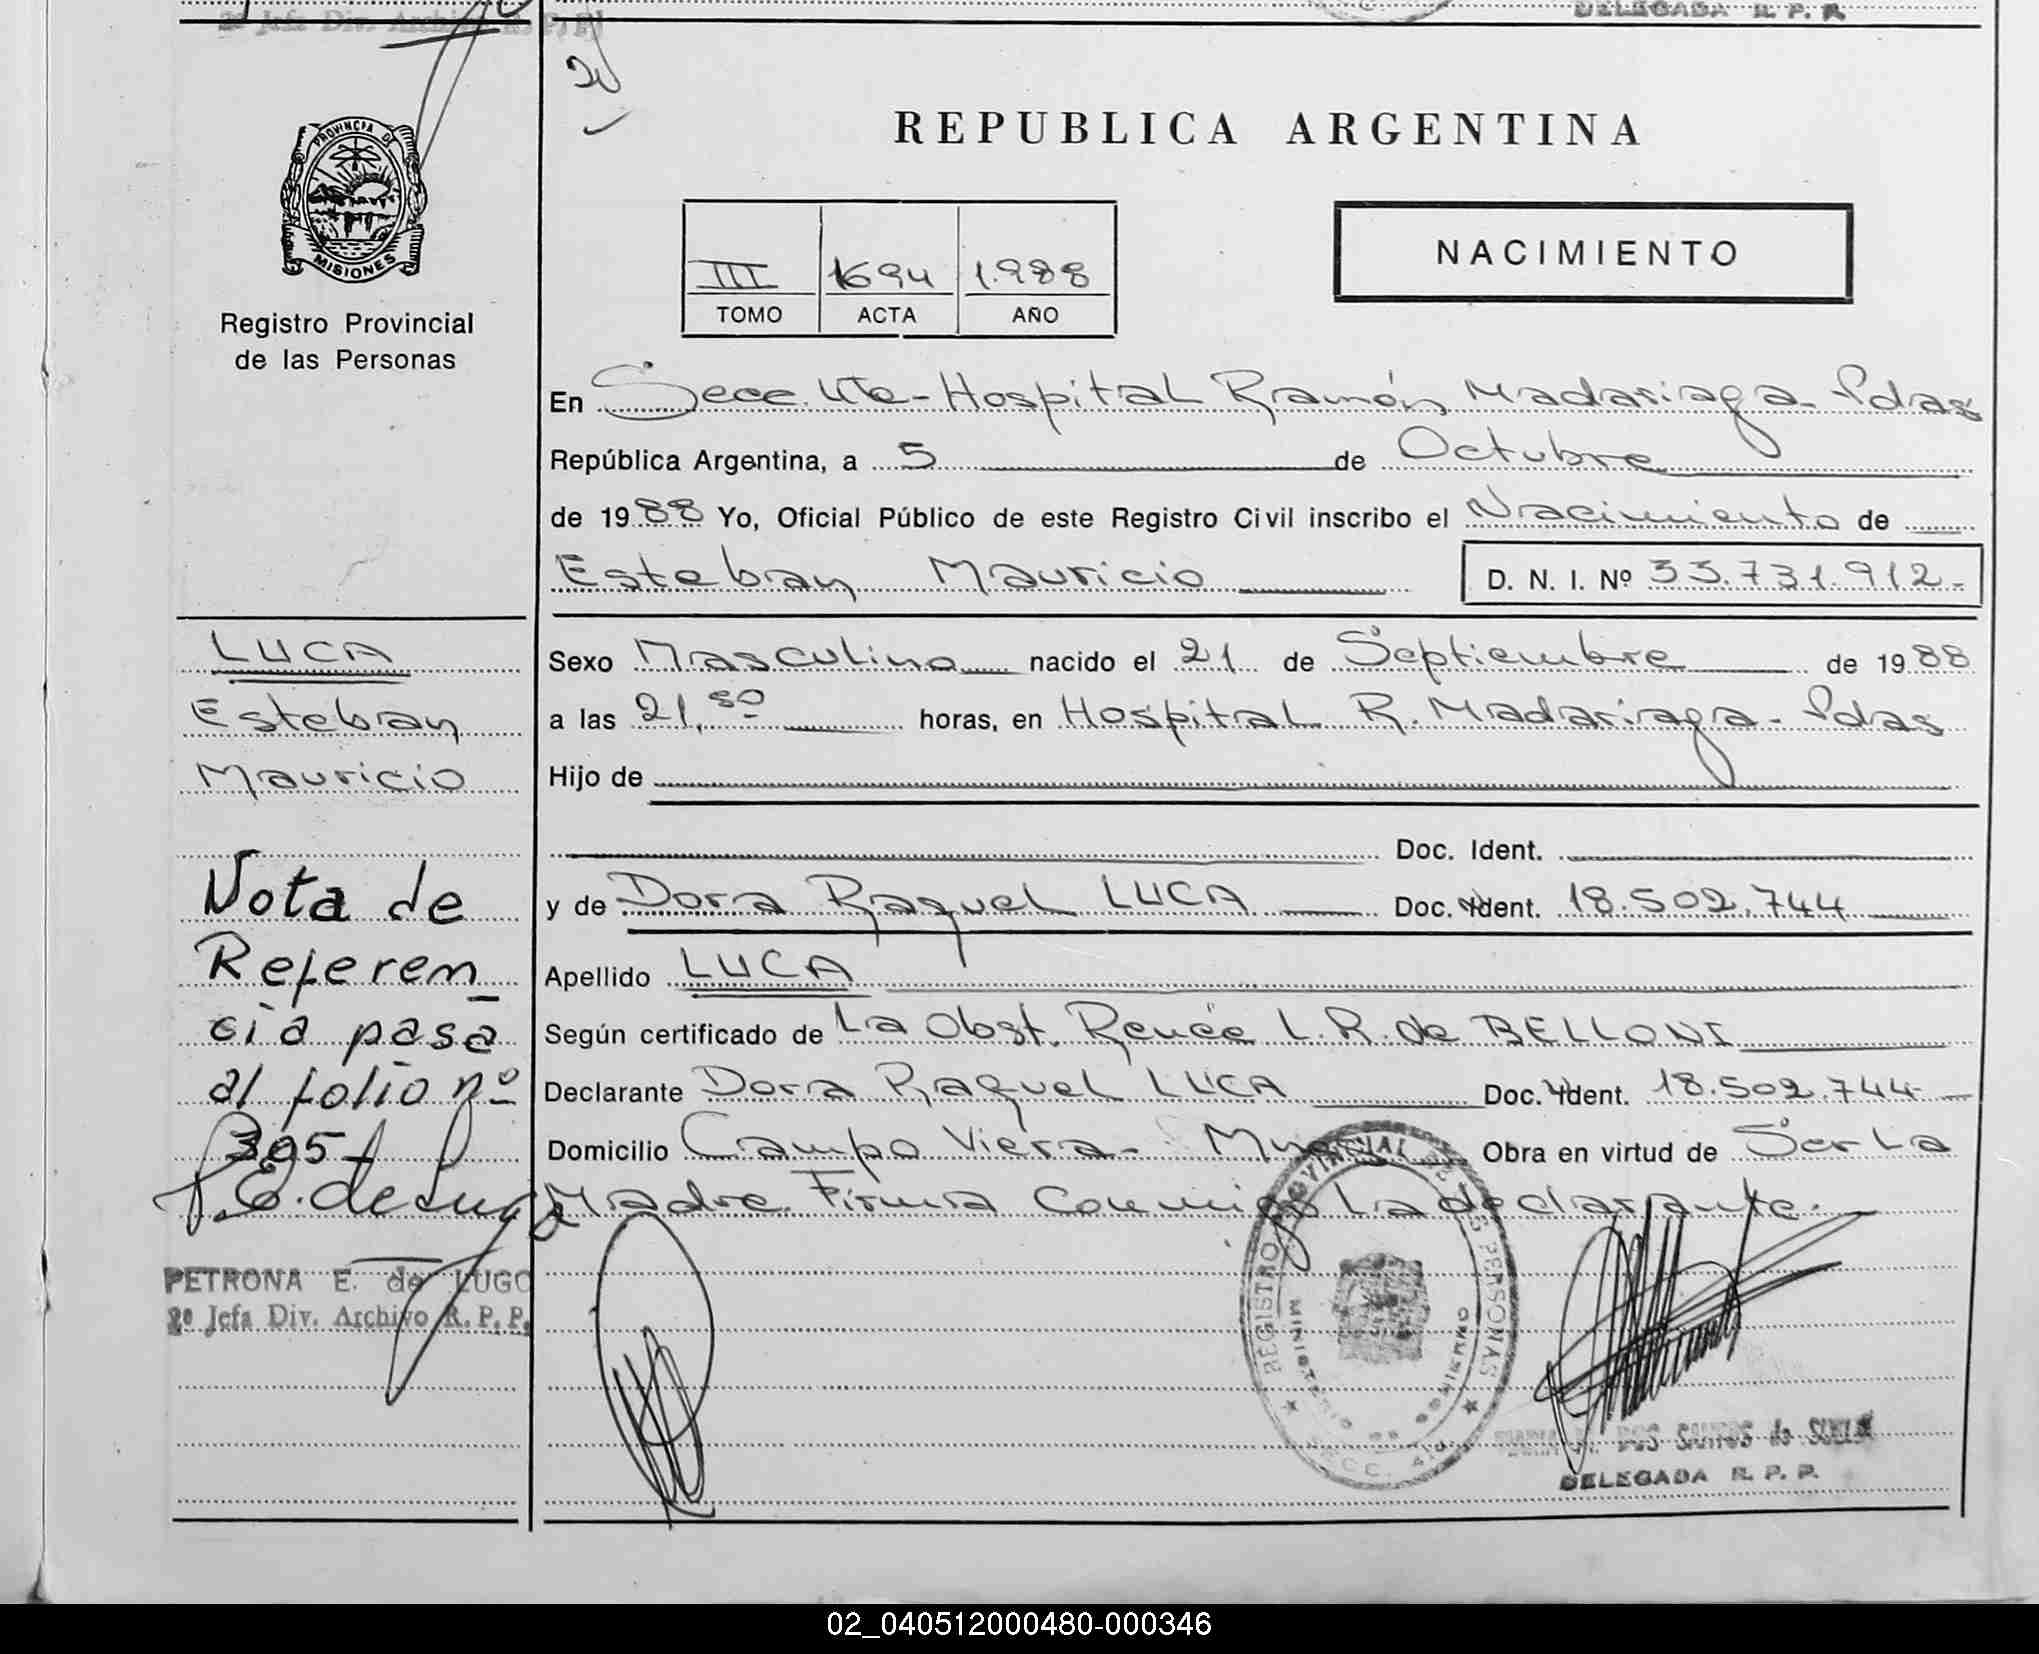 2º Jefa Div. Archivo R. P. P.
DELEGADA R. P. P.
PROVINCIA DE
MISIONES
Registro Provincial
de las Personas
REPUBLICA ARGENTINA
III 1694 1.988
TOMO ACTA AÑO
NACIMIENTO
En Secc. Kte-Hospital Ramón Madariaga-Pdas
República Argentina, a 5 de Octubre
de 1988 Yo, Oficial Público de este Registro Civil inscribo el Nacimiento de
Esteban Mauricio D. N. I. Nº 33.731.912.-
LUCA
Esteban
Mauricio
Sexo Masculino nacido el 21 de Septiembre de 1988
a las 21,50 horas, en Hospital R. Madariaga-Pdas
Hijo de
Doc. Ident.
y de Dora Raquel LUCA Doc. Ident. 18.502.744
Apellido LUCA
Según certificado de La Obst. Renée L.R. de BELLONI
Declarante Dora Raquel LUCA Doc. Ident. 18.502.744
Domicilio Campo Viera- Obra en virtud de Ser La
Madre. Firma Conmigo La declarante.
Nota de
Referen_
cia pasa
al folio nº
395
P. E. de Lugo
PETRONA E. de LUGO
2º Jefa Div. Archivo R. P. P.
REGISTRO PROVINCIAL DE LAS PERSONAS
MINISTERIO DE GOBIERNO
DOS SANTOS de
DELEGADA R. P. P.
02_040512000480-000346